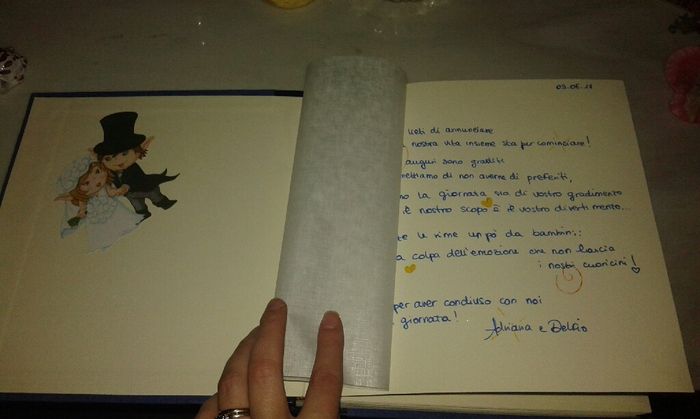 03.06.17
lieti di annunciare
nostra vita insieme sta per cominciare!
auguri sono graditi
mettiamo di non averne di preferiti,
mo la giornata sia di vostro gradimento
è nostro scopo è il vostro divertimento...
te le rime un po' da bambini:
a colpa dell'emozione che non lascia
i nostri cuoricini!
per aver condiviso con noi
giornata!
Adriana e Delfio